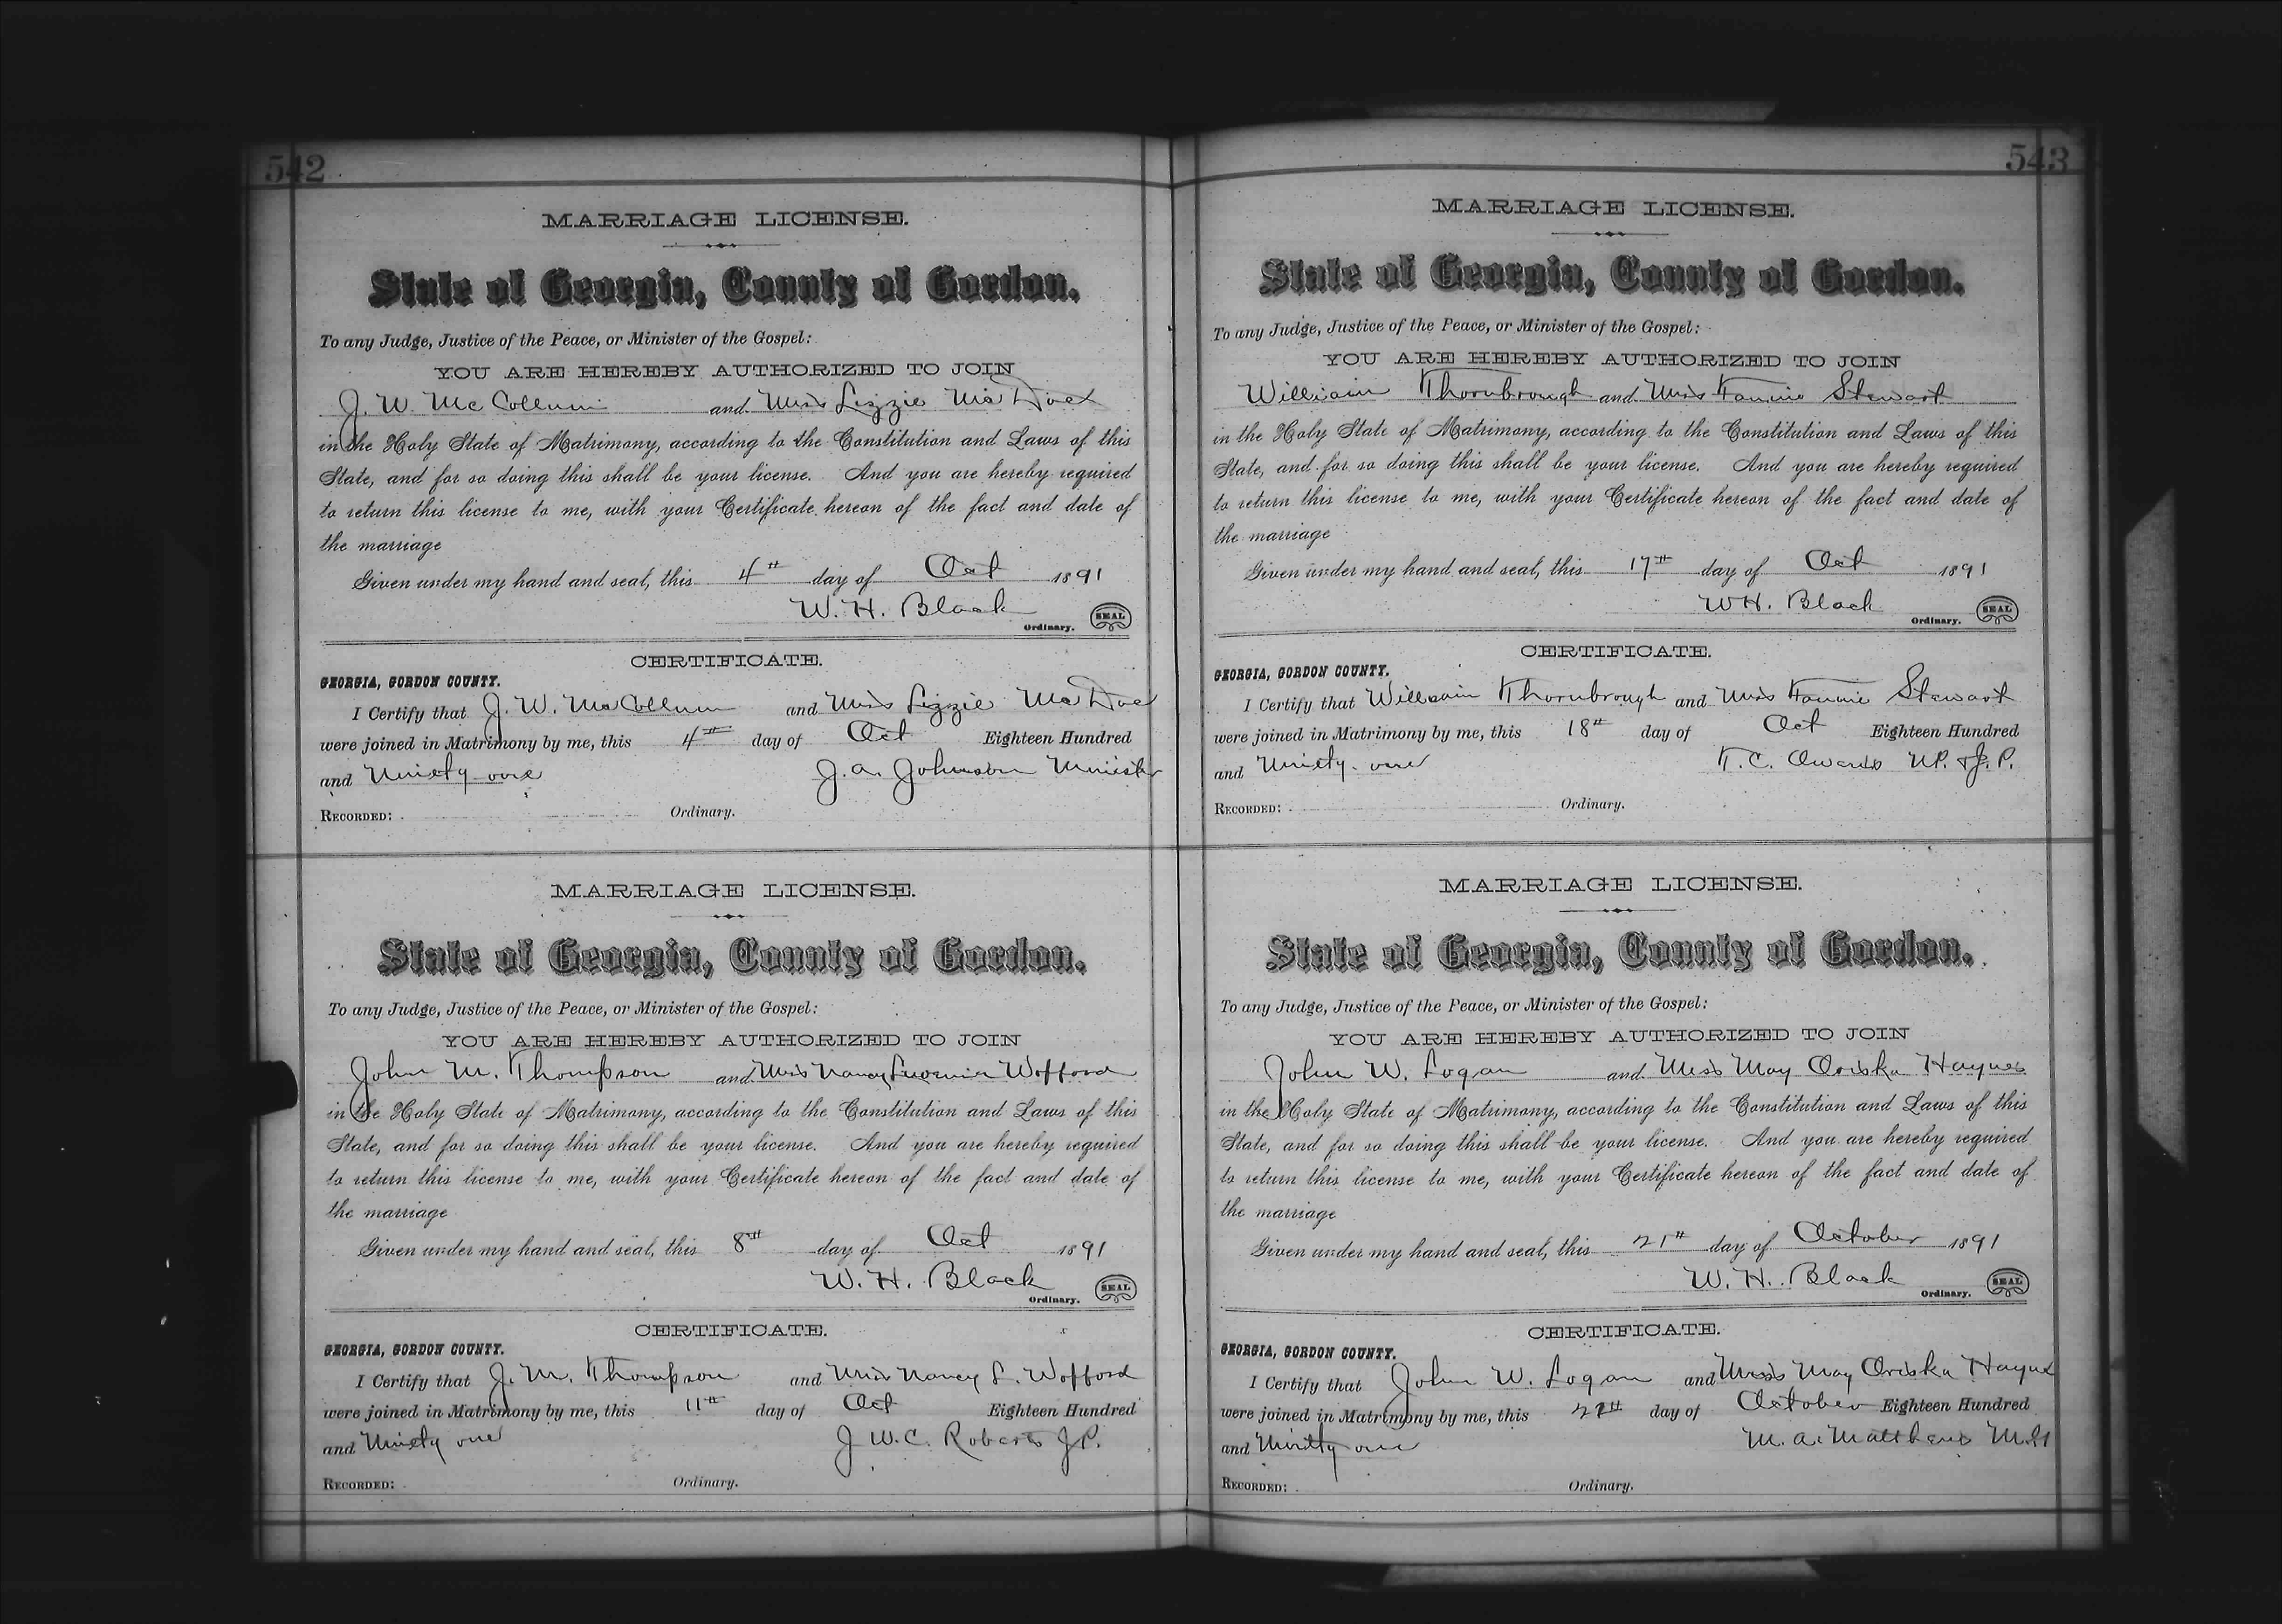 542
MARRIAGE LICENSE.
State of Georgia, County of Gordon.
To any Judge, Justice of the Peace, or Minister of the Gospel:
YOU ARE HEREBY AUTHORIZED TO JOIN
J. W. McCollum and Miss Lizzie
in the Holy State of Matrimony, according to the Constitution and Laws of this
State, and for so doing this shall be your license. And you are hereby required
to return this license to me, with your Certificate hereon of the fact and date of
the marriage
Given under my hand and seal, this 4th day of Oct 1891
W. H. Black
Ordinary. SEAL
CERTIFICATE.
GEORGIA, GORDON COUNTY.
I Certify that J. W. McCollum and Miss Lizzie
were joined in Matrimony by me, this 4th day of Oct Eighteen Hundred
and Ninety one J. A. Johnson Minister
RECORDED: Ordinary.
MARRIAGE LICENSE.
State of Georgia, County of Gordon.
To any Judge, Justice of the Peace, or Minister of the Gospel:
YOU ARE HEREBY AUTHORIZED TO JOIN
John M. Thompson and Miss Nancy Wofford
in the Holy State of Matrimony, according to the Constitution and Laws of this
State, and for so doing this shall be your license. And you are hereby required
to return this license to me, with your Certificate hereon of the fact and date of
the marriage
Given under my hand and seal, this 8th day of Oct 1891
W. H. Black
Ordinary. SEAL
CERTIFICATE.
GEORGIA, GORDON COUNTY.
I Certify that J. M. Thompson and Miss Nancy L. Wofford
were joined in Matrimony by me, this 11th day of Oct Eighteen Hundred
and Ninety one J. W. C. Roberts J.P.
RECORDED: Ordinary.
543
MARRIAGE LICENSE.
State of Georgia, County of Gordon.
To any Judge, Justice of the Peace, or Minister of the Gospel:
YOU ARE HEREBY AUTHORIZED TO JOIN
William Thornbrough and Miss Fannie Stewart
in the Holy State of Matrimony, according to the Constitution and Laws of this
State, and for so doing this shall be your license. And you are hereby required
to return this license to me, with your Certificate hereon of the fact and date of
the marriage
Given under my hand and seal, this 17th day of Oct 1891
W H. Black
Ordinary. SEAL
CERTIFICATE.
GEORGIA, GORDON COUNTY.
I Certify that William Thornbrough and Miss Fannie Stewart
were joined in Matrimony by me, this 18th day of Oct Eighteen Hundred
and Ninety one Owens N.P. & J.P.
RECORDED: Ordinary.
MARRIAGE LICENSE.
State of Georgia, County of Gordon.
To any Judge, Justice of the Peace, or Minister of the Gospel:
YOU ARE HEREBY AUTHORIZED TO JOIN
John W. Logan and Miss May Oriska Haynes
in the Holy State of Matrimony, according to the Constitution and Laws of this
State, and for so doing this shall be your license. And you are hereby required
to return this license to me, with your Certificate hereon of the fact and date of
the marriage
Given under my hand and seal, this 21th day of October 1891
W. H. Black
Ordinary. SEAL
CERTIFICATE.
GEORGIA, GORDON COUNTY.
I Certify that John W. Logan and Miss May Oriska Haynes
were joined in Matrimony by me, this day of October Eighteen Hundred
and Ninety one M. A. Matthews
RECORDED: Ordinary.